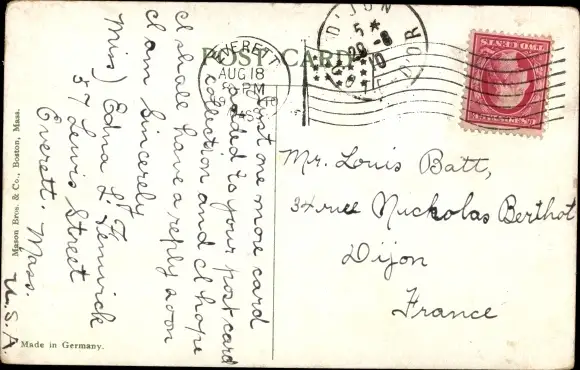 POST CARD
EVERETT
AUG 18
PM
MASS.
DIJON
5 *
29-8
10
D'OR
TWO CENTS
Just one more card
added to your post card
collection and I hope
I shall have a reply soon
I am Sincerely
Miss) Edna L. Fenwick
37 Lewis Street
Everett. Mass.
U.S.A.
Mr. Louis Batt,
34 rue Nuckolas Berthot
Dijon
France
Mason Bros. & Co., Boston, Mass.
Made in Germany.